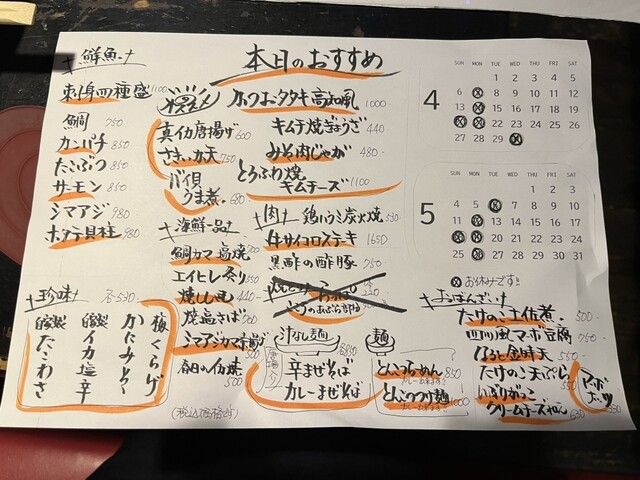 本日のおすすめ
鮮魚
刺身四種盛 1100
鯛 750
カンパチ 850
たこぶつ 850
サーモン 850
シマアジ 980
ホタテ貝柱 980
オススメ
真イカ唐揚げ 600
さきいか天 750
バイ貝
うま煮 680
海鮮一品
鯛カマ塩焼
エイヒレ炙り 550
焼ししゃも 440
焼塩さば 760
シマアジカマ唐揚げ
500
カツオタタキ高知風 1000
キムチ焼ぎょうざ 440
みそ肉じゃが 480
とろふわ焼
キムチーズ 1100
肉
鶏ハラミ炭火焼 580
牛サイコロステキ 1650
黒酢の酢豚 750
汁なし麺
辛まぜそば
カレーまぜそば
麺
とんこつらーめん 850
とんこつつけ麺 1000
珍味 各530
梅くらげ
かにみそ
自家製 イカ塩辛
自家製 たこわさ
(税込価格です)
4
SUN MON TUE WED THU FRI SAT
1 2 3 4 5
6 8 9 10 11 12
13 15 16 17 18 19
22 23 24 25 26
27 28 29
5
SUN MON TUE WED THU FRI SAT
1 2 3
4 5 7 8 9 10
11 13 14 15 16 17
21 22 23 24
25 27 28 29 30 31
お休みです!!
おばんざい
たけのこ土佐煮 500
四川風マーボ豆腐 750
550
たけのこ天ぷら
いぶりがっこ
クリームチーズ 630
マーボ
550